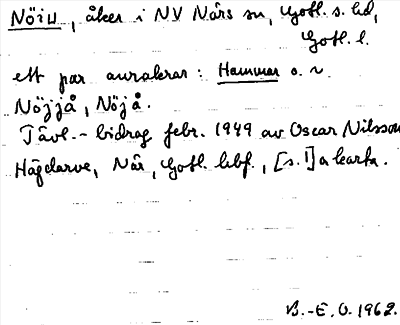 Nöju, åker i NV Närs sn, Gotl. s. hd,
Gotl. l.
ett par auralerar: Hammar o. N
Nöjjå, Nöjå.
Tävl.-bidrag febr. 1949 av Oscar Nilsson
Hägdarve, När, Gotl. lbf., [s. 1] a karta.
B.-E. O. 1962.